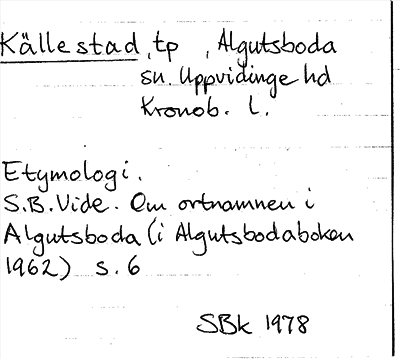 Källestad, tp , Algutsboda
sn. Uppvidinge hd
Kronob. l.
Etymologi.
S.B. Vide. Om ortnamnen i
Algutsboda (i Algutsbodaboken
1962) s. 6
SBk 1978